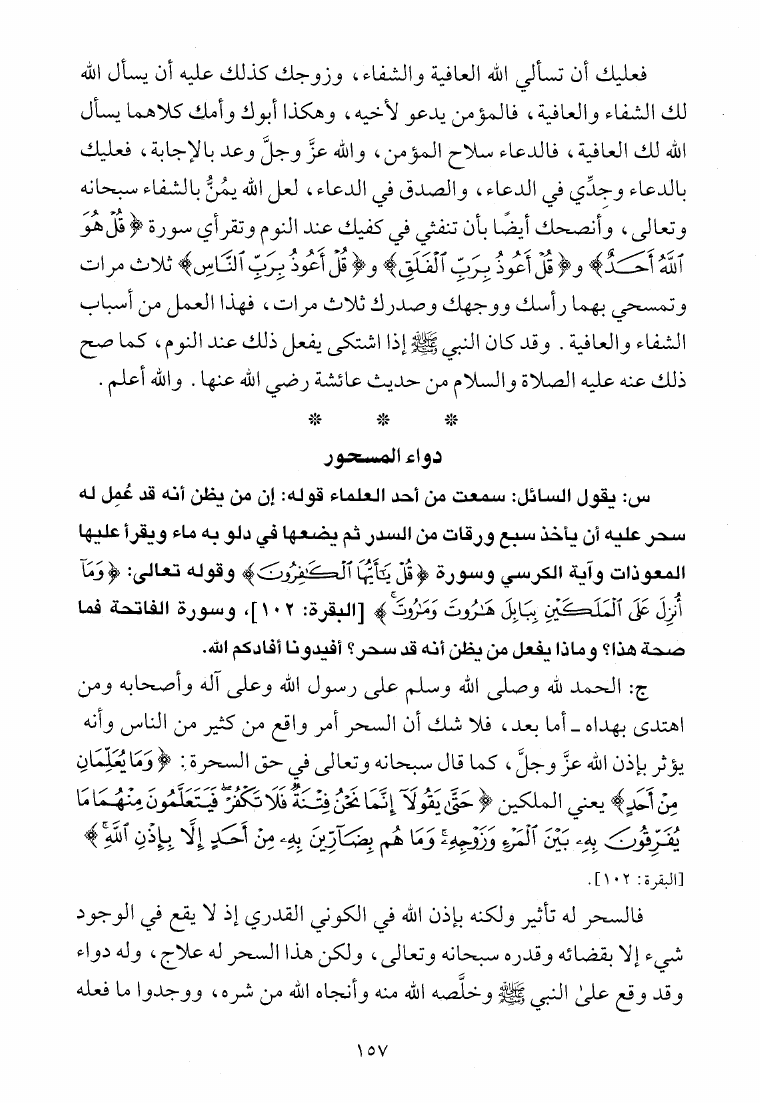 فعليك أن تسألي الله العافية والشفاء، وزوجك كذلك عليه أن يسأل الله
لك الشفاء والعافية، فالمؤمن يدعو لأخيه، وهكذا أبوك وأمك كلاهما يسأل
الله لك العافية، فالدعاء سلاح المؤمن، والله عزَّ وجلَّ وعد بالإجابة، فعليك
بالدعاء وجِدِّي في الدعاء، والصدق في الدعاء، لعل الله يمُنُّ بالشفاء سبحانه
وتعالى، وأنصحك أيضًا بأن تنفثي في كفيك عند النوم وتقرأي سورة ﴿قُلْ هُوَ
ٱللَّهُ أَحَدٌ﴾ و﴿قُلْ أَعُوذُ بِرَبِّ ٱلْفَلَقِ﴾ و﴿قُلْ أَعُوذُ بِرَبِّ ٱلنَّاسِ﴾ ثلاث مرات
وتمسحي بهما رأسك ووجهك وصدرك ثلاث مرات، فهذا العمل من أسباب
الشفاء والعافية. وقد كان النبي ﷺ إذا اشتكى يفعل ذلك عند النوم، كما صح
ذلك عنه عليه الصلاة والسلام من حديث عائشة رضي الله عنها. والله أعلم.
* * *
دواء المسحور
س: يقول السائل: سمعت من أحد العلماء قوله: إن من يظن أنه قد عُمِل له
سحر عليه أن يأخذ سبع ورقات من السدر ثم يضعها في دلو به ماء ويقرأ عليها
المعوذات وآية الكرسي وسورة ﴿قُلْ يَٰٓأَيُّهَا ٱلْكَٰفِرُونَ﴾ وقوله تعالى: ﴿وَمَآ
أُنزِلَ عَلَى ٱلْمَلَكَيْنِ بِبَابِلَ هَٰرُوتَ وَمَٰرُوتَ ۚ﴾ [البقرة: ١٠٢]، وسورة الفاتحة فما
صحة هذا؟ وماذا يفعل من يظن أنه قد سحر؟ أفيدونا أفادكم الله.
ج: الحمد لله وصلى الله وسلم على رسول الله وعلى آله وأصحابه ومن
اهتدى بهداه ـ أما بعد، فلا شك أن السحر أمر واقع من كثير من الناس وأنه
يؤثر بإذن الله عزَّ وجلَّ، كما قال سبحانه وتعالى في حق السحرة: ﴿وَمَا يُعَلِّمَانِ
مِنْ أَحَدٍ﴾ يعني الملكين ﴿حَتَّىٰ يَقُولَآ إِنَّمَا نَحْنُ فِتْنَةٌ فَلَا تَكْفُرْ ۖ فَيَتَعَلَّمُونَ مِنْهُمَا مَا
يُفَرِّقُونَ بِهِۦ بَيْنَ ٱلْمَرْءِ وَزَوْجِهِۦ ۚ وَمَا هُم بِضَآرِّينَ بِهِۦ مِنْ أَحَدٍ إِلَّا بِإِذْنِ ٱللَّهِ ۚ﴾
[البقرة: ١٠٢].
فالسحر له تأثير ولكنه بإذن الله في الكوني القدري إذ لا يقع في الوجود
شيء إلا بقضائه وقدره سبحانه وتعالى، ولكن هذا السحر له علاج، وله دواء
وقد وقع علىٰ النبي ﷺ وخلَّصه الله منه وأنجاه الله من شره، ووجدوا ما فعله
١٥٧